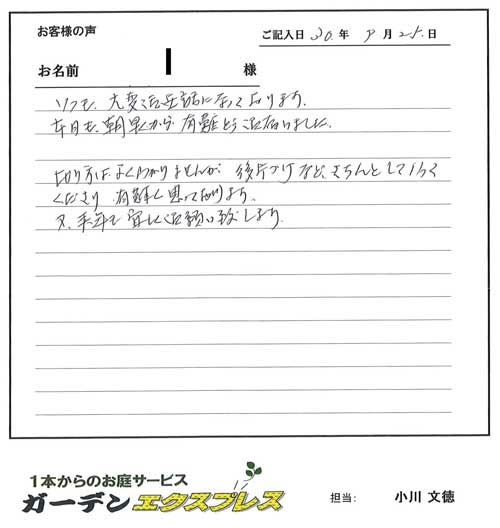 お客様の声
ご記入日 30. 年 9 月 25. 日
お名前 様
いつも、大変お世話になっております。
本日も、朝早くから 有難とうございました。
切り方は、よくわかりませんが、後片づけなど、きちんとして
くださり 有難く思っております。
又、来年も宜しくお願い致します。
1本からのお庭サービス
ガーデンエクスプレス
担当: 小川 文徳